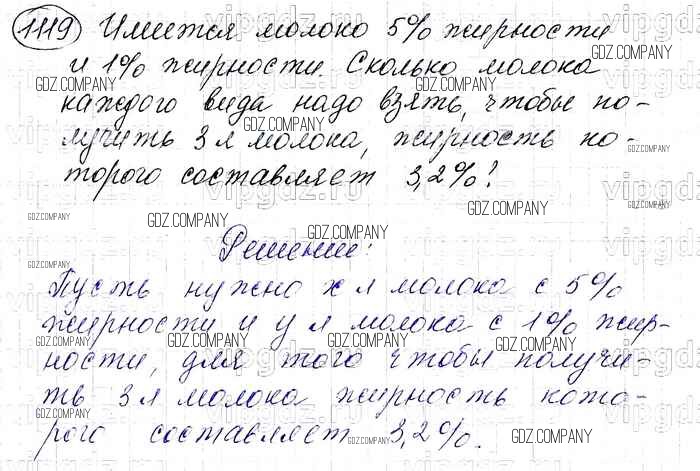 1119 Имеется молоко 5% жирности
и 1% жирности. Сколько молока
каждого вида надо взять, чтобы по-
лучить 3 л молока, жирность ко-
торого составляет 3,2%?
Решение:
Пусть нужно x л молока с 5%
жирности и y л молока с 1% жир-
ности, для того чтобы получи-
ть 3 л молока жирность кото-
рого составляет 3,2%.